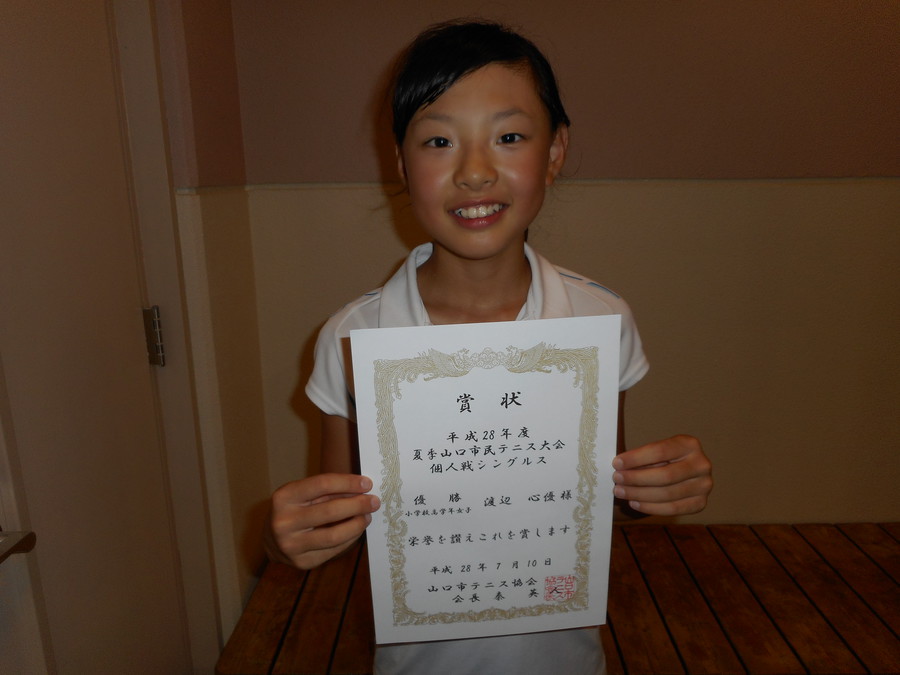 賞 状
平成28年度
夏季山口市民テニス大会
個人戦シングルス
優 勝 渡辺 心優 様
小学校高学年女子
栄誉を讃えこれを賞します
平成 28 年 7 月 10 日
山口市テニス協会
会長 秦 英